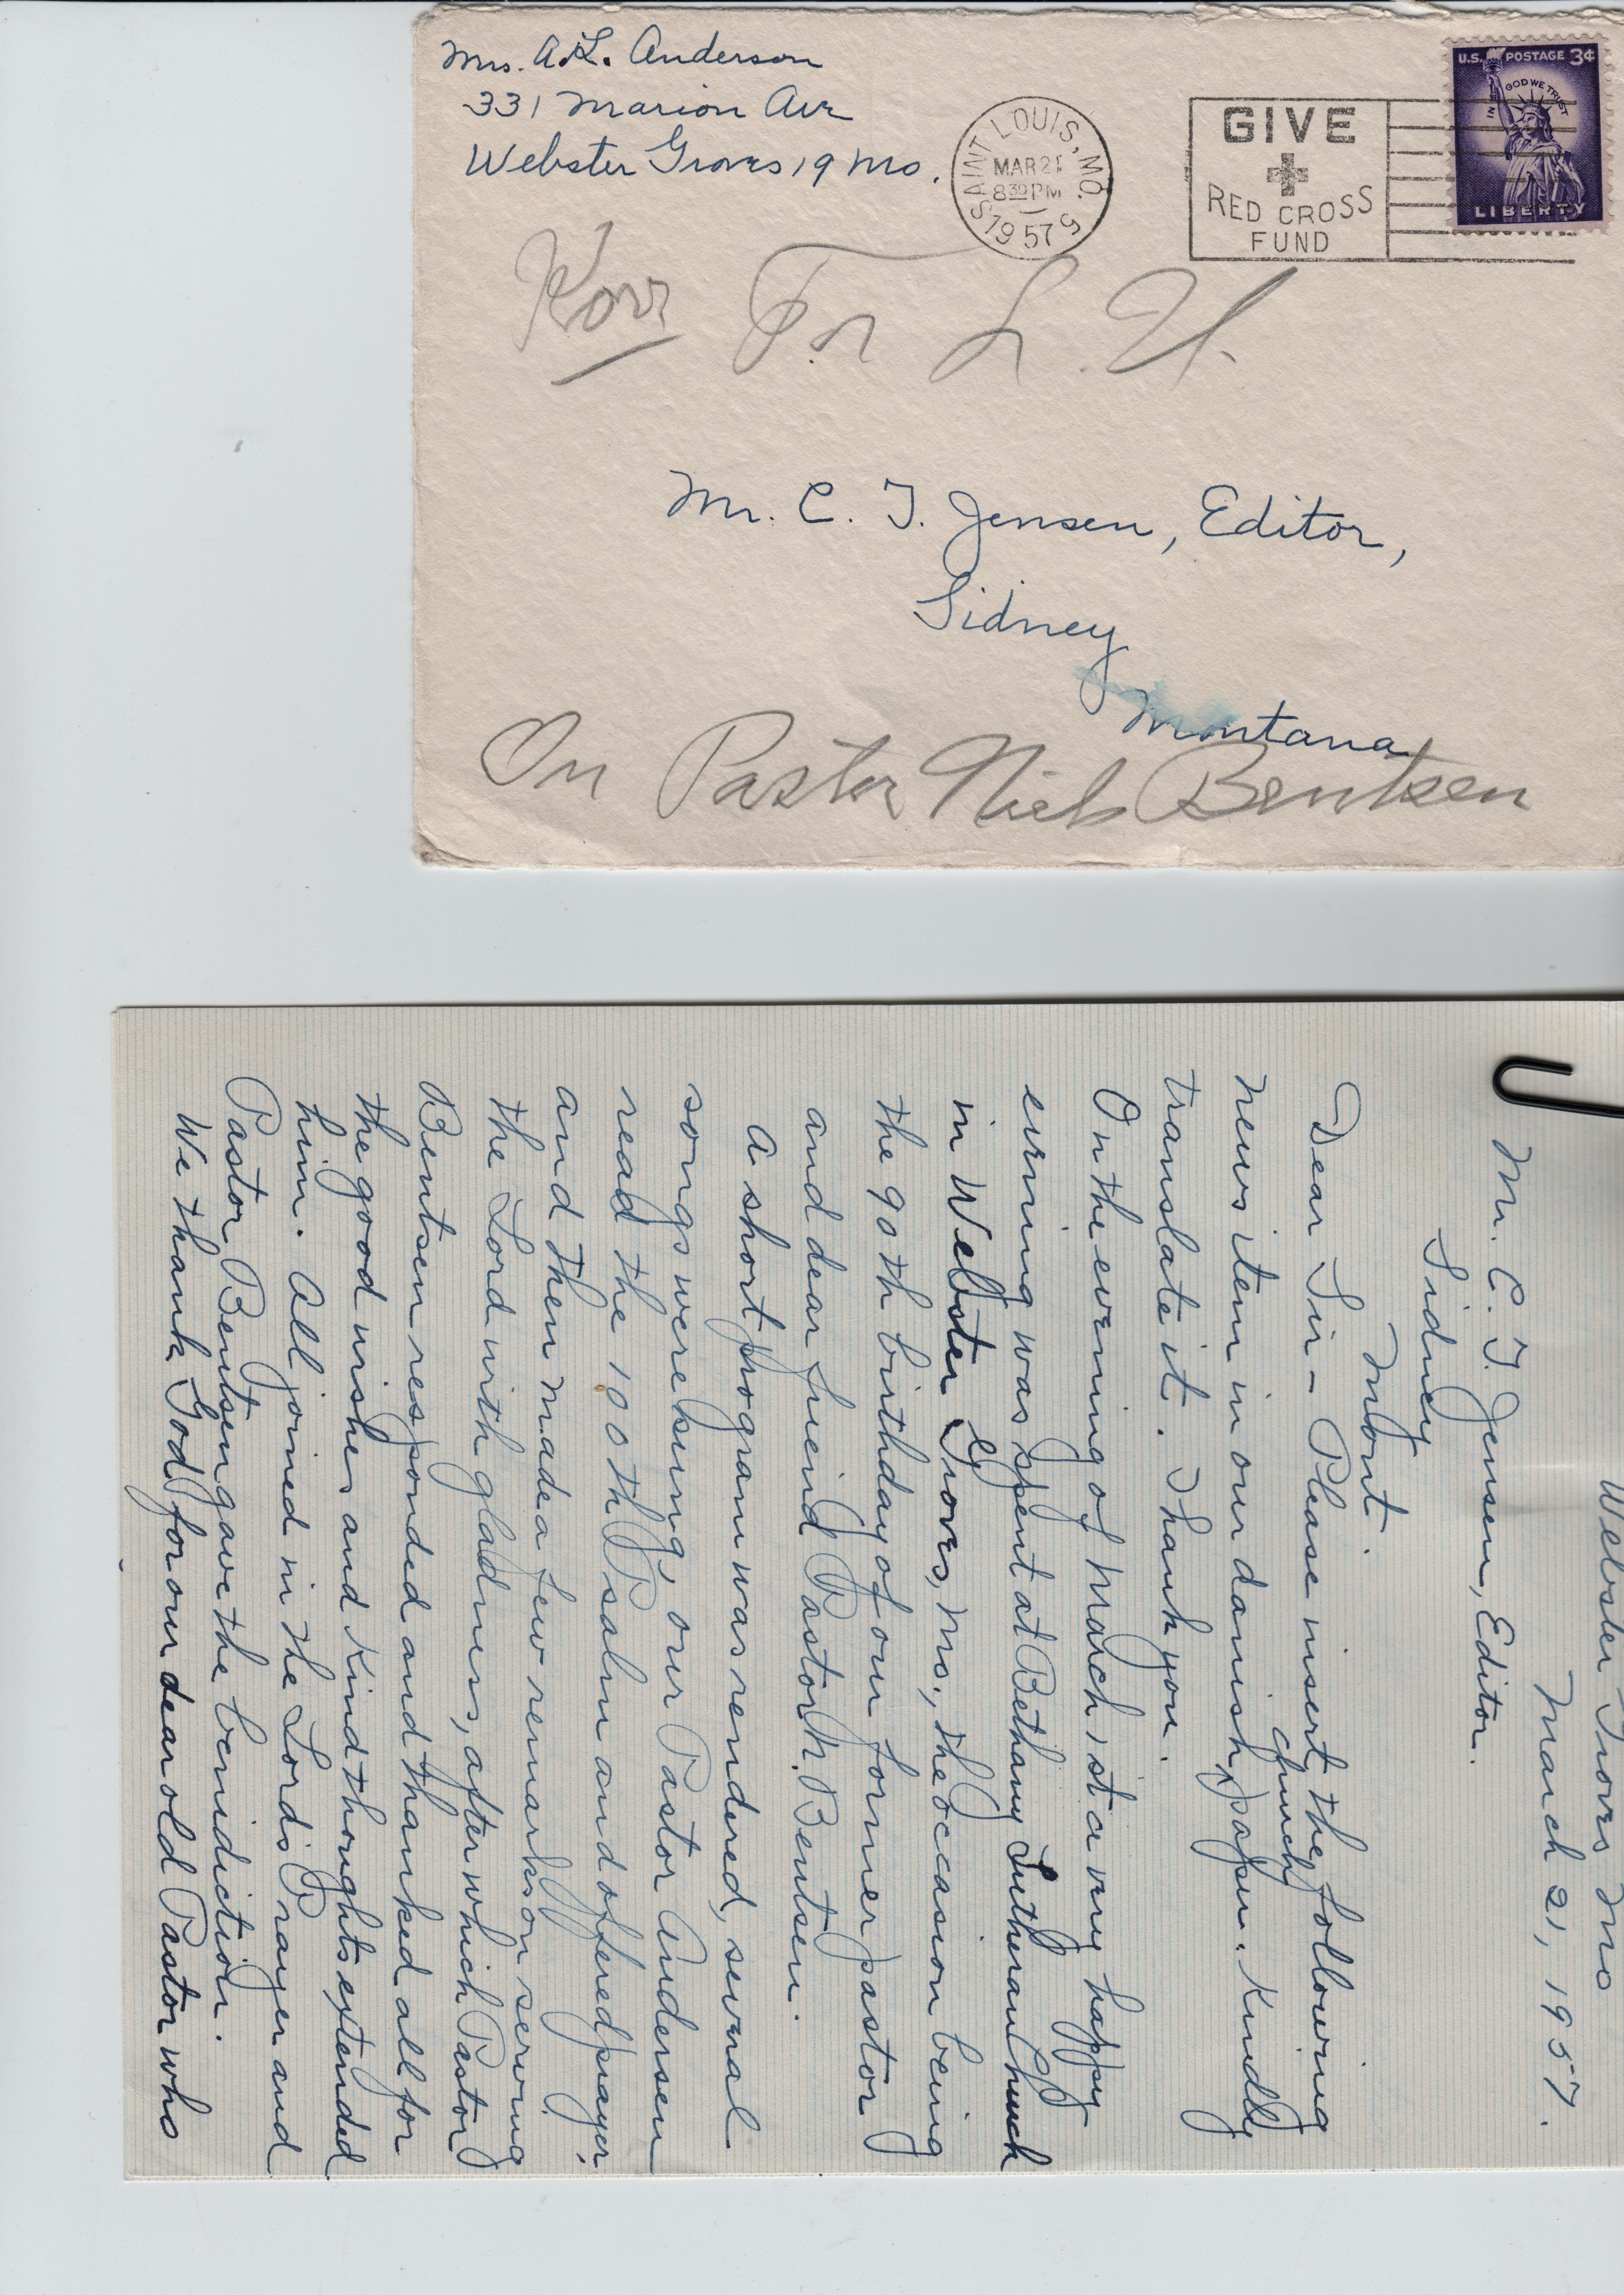 Mrs. A. L. Anderson
331 Marion Ave
Webster Groves 19 Mo.
SAINT LOUIS, MO.
MAR 21
8 30 PM
1957
GIVE
RED CROSS
FUND
U.S. POSTAGE 3¢
IN GOD WE TRUST
LIBERTY
Korr For L. U.
Mr. C. T. Jensen, Editor,
Sidney
Montana
On Pastor Niels Bentsen
Webster Groves Mo
March 21, 1957.
Mr. C. T. Jensen, Editor.
Sidney
Mont.
Dear Sir – Please insert the following
church
news item in our danish paper. Kindly
translate it. Thank you.
On the evening of March 1st a very happy
evening was spent at Bethany Lutheran Church
in Webster Groves, Mo., the occasion being
the 90th birthday of our former pastor
and dear friend Pastor N. Bentsen.
A short program was rendered, several
songs were sung, our Pastor Andersen
read the 100th Psalm and offered prayer,
and then made a few remarks on serving
the Lord with gladness, after which Pastor
Bentsen responded and thanked all for
the good wishes and kind thoughts extended
him. All joined in the Lord's Prayer and
Pastor Bentsen gave the benediction.
We thank God for our dear old Pastor who